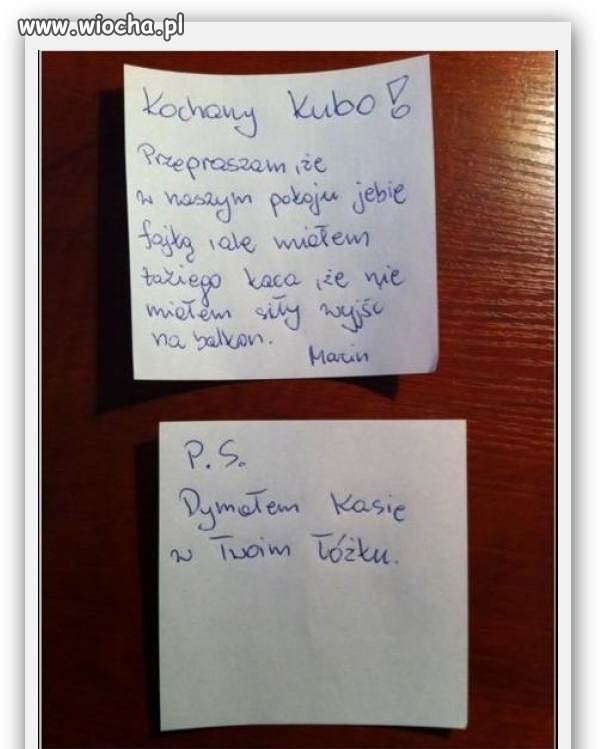 www.wiocha.pl
Kochany Kubo!
Przepraszam, że
w naszym pokoju jebie
fajką, ale miałem
takiego kaca, że nie
miałem siły wyjść
na balkon.
Marcin
P.S.
Dymałem Kasię
w Twoim łóżku.